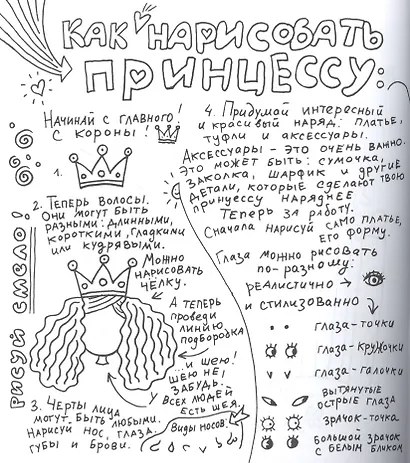 КАК НАРИСОВАТЬ
ПРИНЦЕССУ:
Начинай с главного!
с короны!
1.
2. Теперь волосы.
Они могут быть
разными: длинными,
короткими, гладкими
или кудрявыми.
Можно
нарисовать
чёлку.
А теперь
проведи
линию
подбородка
... и шею!
шею не
забудь.
У всех людей
есть шея.
3. Черты лица
могут быть любыми.
Нарисуй нос, глаза,
губы и брови.
Виды носов:
Рисуй смело!
4. Придумай интересный
и красивый наряд: платье,
туфли и аксессуары.
Аксессуары - это очень важно.
Это может быть: сумочка,
заколка, шарфик и другие
детали, которые сделают твою
принцессу наряднее
Теперь за работу.
Сначала нарисуй само платье,
его форму.
Глаза можно рисовать
по-разному:
реалистично
и стилизованно
глаза-точки
глаза-кружочки
глаза-галочки
вытянутые
острые глаза
зрачок-точка
большой зрачок
с белым бликом